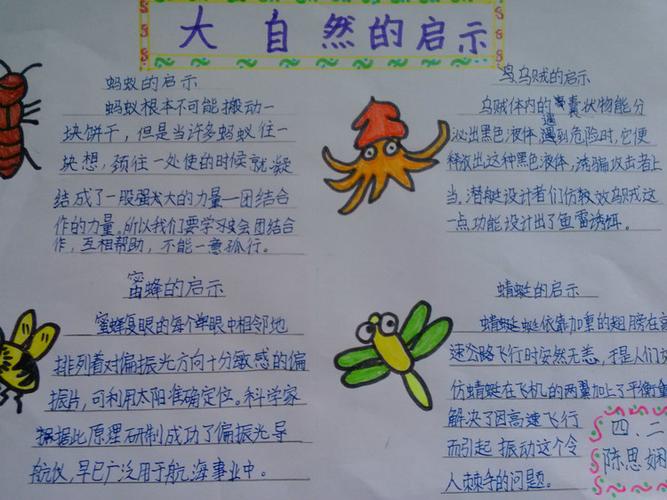 大自然的启示
蚂蚁的启示
蚂蚁根本不可能搬动一
块饼干，但是当许多蚂蚁往一
块想，须往一处使的时候就凝
结成了一股强大的力量—团结合
作的力量。所以我们要学习会团结合
作，互相帮助，不能一意孤行。
乌贼的启示
乌贼体内的囊状物能分
泌出黑色液体，遇到危险时，它便
释放出这种黑色液体，诱骗攻击者上
当。潜艇设计者们仿效乌贼这
一点功能设计出了鱼雷诱饵。
蜜蜂的启示
蜜蜂复眼的每个单眼中相邻地
排列着对偏振光方向十分敏感的偏
振片，可利用太阳准确定位。科学家
据此原理研制成功了偏振光导
航仪，早已广泛用于航海事业中。
蜻蜓的启示
蜻蜓蜓依靠加重的翅膀在
速公路飞行时安然无恙，于是人们
仿蜻蜓在飞机的两翼加上了平衡重
解决了因高速飞行
而引起振动这个令
人棘手的问题。
四、二
陈思娴